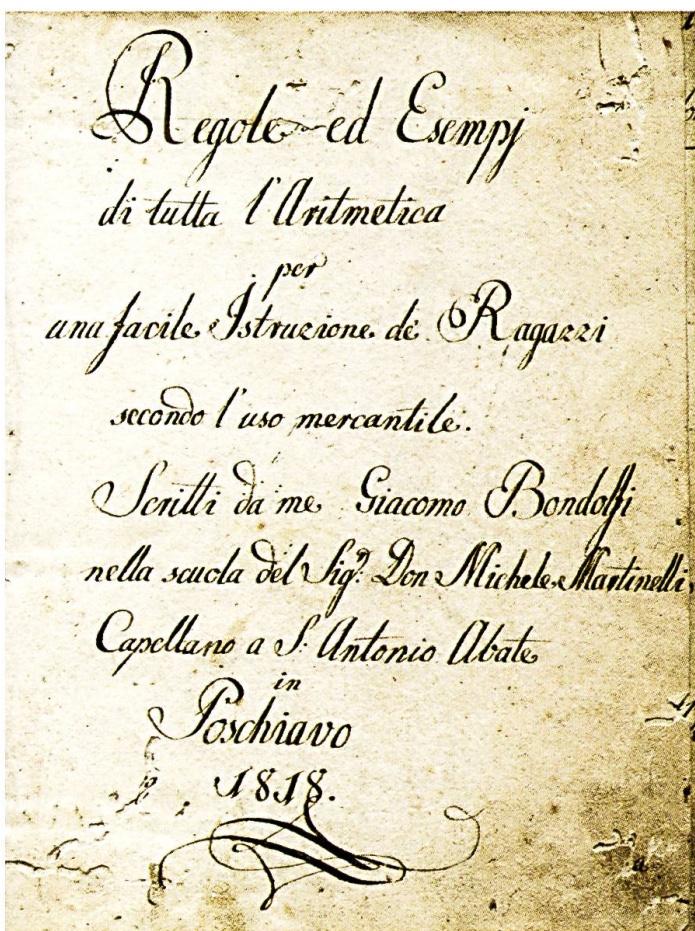 Regole ed Esempj
di tutta l'Aritmetica
per
una facile Istruzione de' Ragazzi
secondo l'uso mercantile.
Scritti da me Giacomo Bondolfi
nella scuola del Sig.n Don Michele Martinelli
Capellano a S: Antonio Abate
in
Poschiavo
1818.